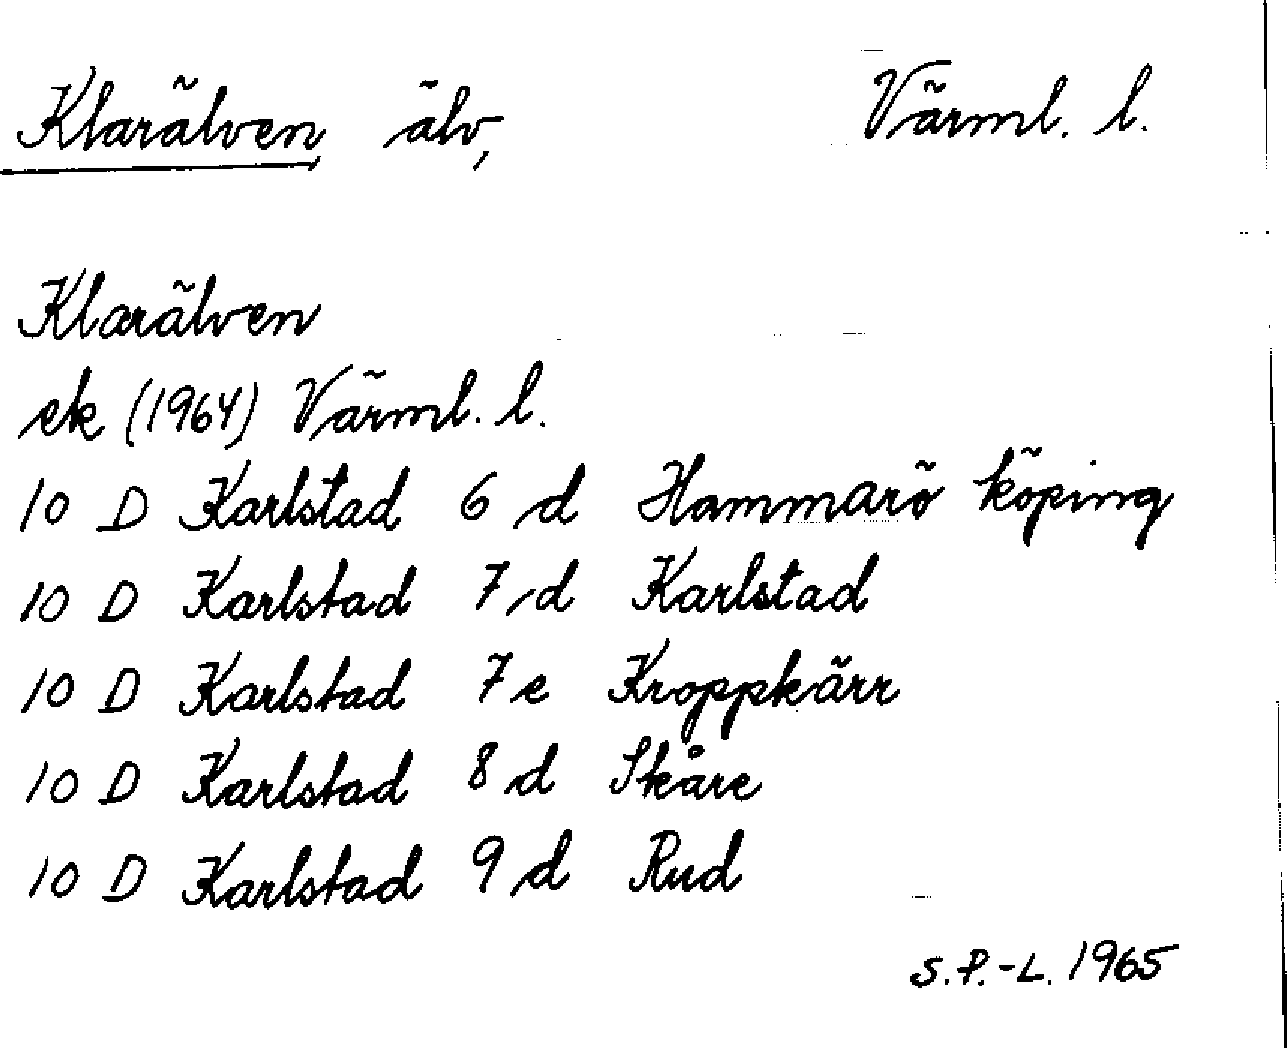 Klarälven älv, Värml. l.
Klarälven
ek (1964) Värml. l.
10 D Karlstad 6 d Hammarö köping
10 D Karlstad 7 d Karlstad
10 D Karlstad 7 e Kroppkärr
10 D Karlstad 8 d Skåre
10 D Karlstad 9 d Rud
S.P.-L. 1965